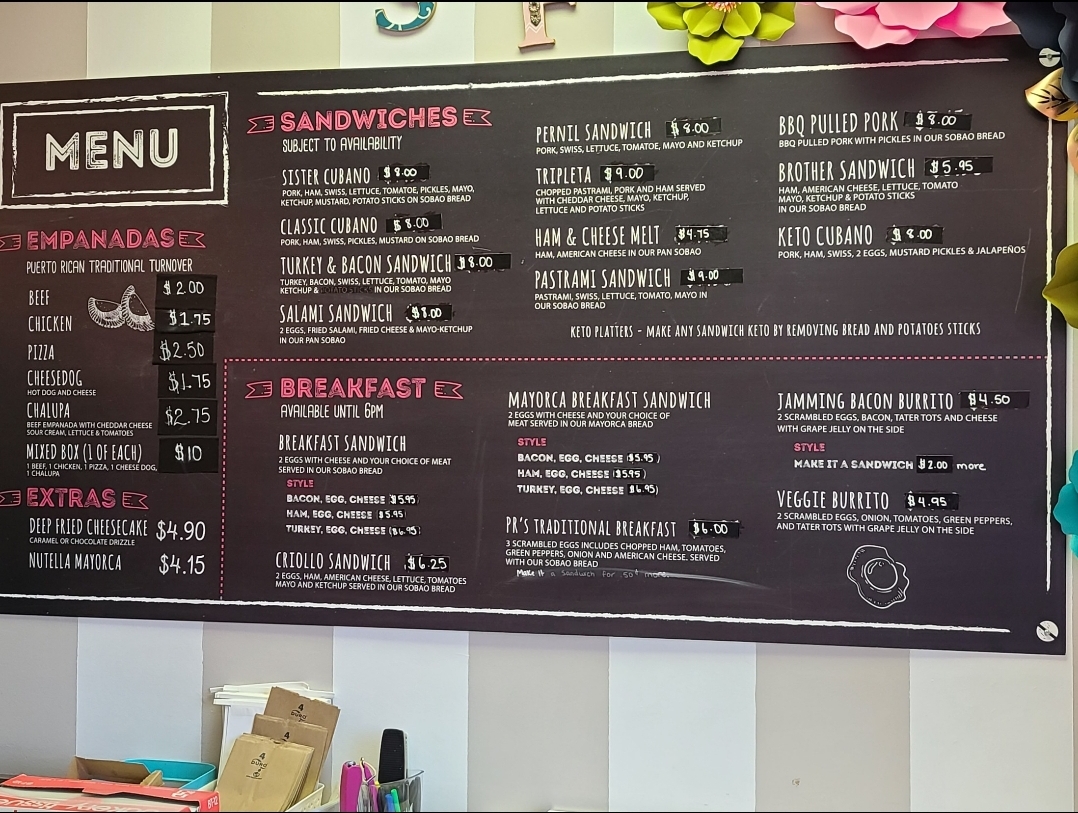 MENU
EMPANADAS
PUERTO RICAN TRADITIONAL TURNOVER
BEEF $2.00
CHICKEN $1.75
PIZZA $2.50
CHEESEDOG $1.75
HOT DOG AND CHEESE
CHALUPA $2.75
BEEF EMPANADA WITH CHEDDAR CHEESE
SOUR CREAM, LETTUCE & TOMATOES
MIXED BOX (1 OF EACH) $10
1 BEEF, 1 CHICKEN, 1 PIZZA, 1 CHEESE DOG,
1 CHALUPA
EXTRAS
DEEP FRIED CHEESECAKE $4.90
CARAMEL OR CHOCOLATE DRIZZLE
NUTELLA MAYORCA $4.15
SANDWICHES
SUBJECT TO AVAILABILITY
SISTER CUBANO $8.00
PORK, HAM, SWISS, LETTUCE, TOMATOE, PICKLES, MAYO,
KETCHUP, MUSTARD, POTATO STICKS ON SOBAO BREAD
CLASSIC CUBANO $8.00
PORK, HAM, SWISS, PICKLES, MUSTARD ON SOBAO BREAD
TURKEY & BACON SANDWICH $8.00
TURKEY, BACON, SWISS, LETTUCE, TOMATO, MAYO
KETCHUP & POTATO STICKS IN OUR SOBAO BREAD
SALAMI SANDWICH $8.00
2 EGGS, FRIED SALAMI, FRIED CHEESE & MAYO-KETCHUP
IN OUR PAN SOBAO
PERNIL SANDWICH $8.00
PORK, SWISS, LETTUCE, TOMATOE, MAYO AND KETCHUP
TRIPLETA $9.00
CHOPPED PASTRAMI, PORK AND HAM SERVED
WITH CHEDDAR CHEESE, MAYO, KETCHUP,
LETTUCE AND POTATO STICKS
HAM & CHEESE MELT $4.75
HAM, AMERICAN CHEESE IN OUR PAN SOBAO
PASTRAMI SANDWICH $9.00
PASTRAMI, SWISS, LETTUCE, TOMATO, MAYO IN
OUR SOBAO BREAD
BBQ PULLED PORK $8.00
BBQ PULLED PORK WITH PICKLES IN OUR SOBAO BREAD
BROTHER SANDWICH $5.95
HAM, AMERICAN CHEESE, LETTUCE, TOMATO
MAYO, KETCHUP & POTATO STICKS
IN OUR SOBAO BREAD
KETO CUBANO $8.00
PORK, HAM, SWISS, 2 EGGS, MUSTARD PICKLES & JALAPEÑOS
KETO PLATTERS - MAKE ANY SANDWICH KETO BY REMOVING BREAD AND POTATOES STICKS
BREAKFAST
AVAILABLE UNTIL 6PM
BREAKFAST SANDWICH
2 EGGS WITH CHEESE AND YOUR CHOICE OF MEAT
SERVED IN OUR SOBAO BREAD
STYLE
BACON, EGG, CHEESE ($5.95)
HAM, EGG, CHEESE ($5.95)
TURKEY, EGG, CHEESE ($6.95)
CRIOLLO SANDWICH $6.25
2 EGGS, HAM, AMERICAN CHEESE, LETTUCE, TOMATOES
MAYO AND KETCHUP SERVED IN OUR SOBAO BREAD
MAYORCA BREAKFAST SANDWICH
2 EGGS WITH CHEESE AND YOUR CHOICE OF
MEAT SERVED IN OUR MAYORCA BREAD
STYLE
BACON, EGG, CHEESE ($5.95)
HAM, EGG, CHEESE ($5.95)
TURKEY, EGG, CHEESE ($6.95)
PR'S TRADITIONAL BREAKFAST $6.00
3 SCRAMBLED EGGS INCLUDES CHOPPED HAM, TOMATOES,
GREEN PEPPERS, ONION AND AMERICAN CHEESE. SERVED
WITH OUR SOBAO BREAD
Make it a Sandwich for 50¢ more.
JAMMING BACON BURRITO $4.50
2 SCRAMBLED EGGS, BACON, TATER TOTS AND CHEESE
WITH GRAPE JELLY ON THE SIDE
STYLE
MAKE IT A SANDWICH $2.00 more
VEGGIE BURRITO $4.95
2 SCRAMBLED EGGS, ONION, TOMATOES, GREEN PEPPERS,
AND TATER TOTS WITH GRAPE JELLY ON THE SIDE
4
4
4